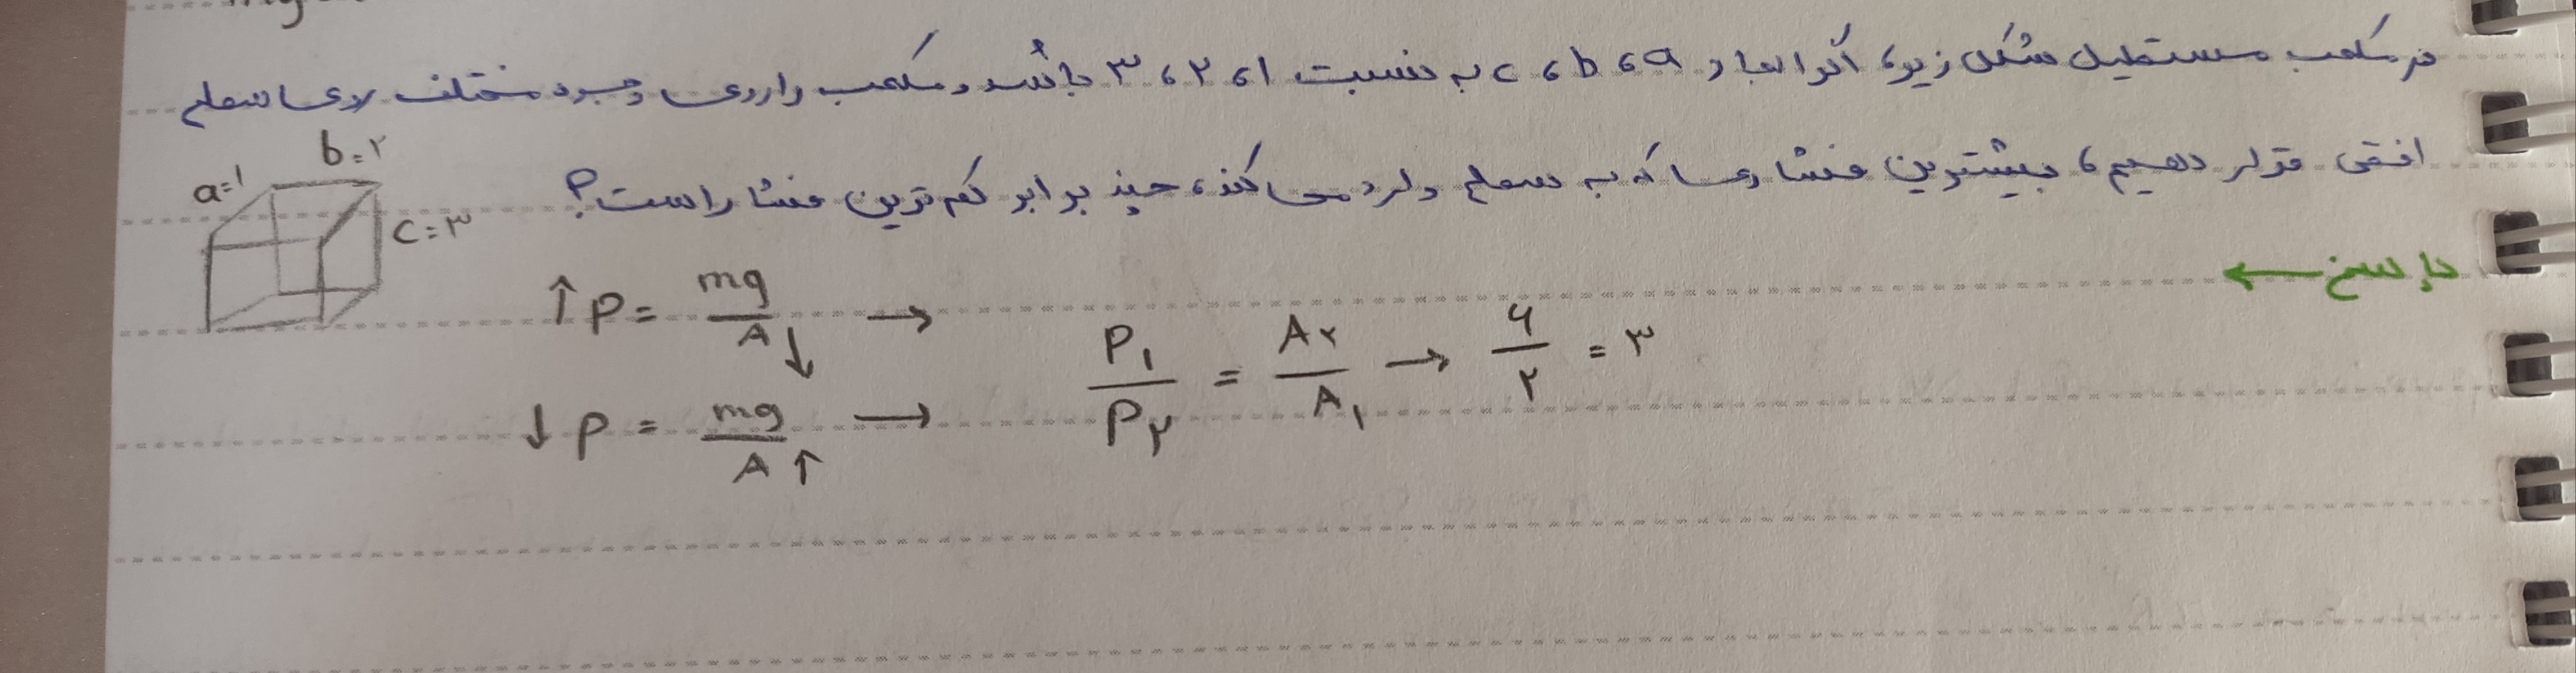 در مکعب مستطیل شکل زیر، اگر ابعاد a، b، c به نسبت ۱، ۲، ۳ باشد و مکعب را روی وجوه مختلف روی سطح
افقی قرار دهیم، بیشترین فشاری که به سطح وارد می‌کند، چند برابر کم‌ترین فشار است؟
a=۱
b=۲
c=۳
پاسخ ←
↑P = mg / A↓ →
↓P = mg / A↑ →
P۱ / P۲ = A۲ / A۱ → ۶ / ۲ = ۳